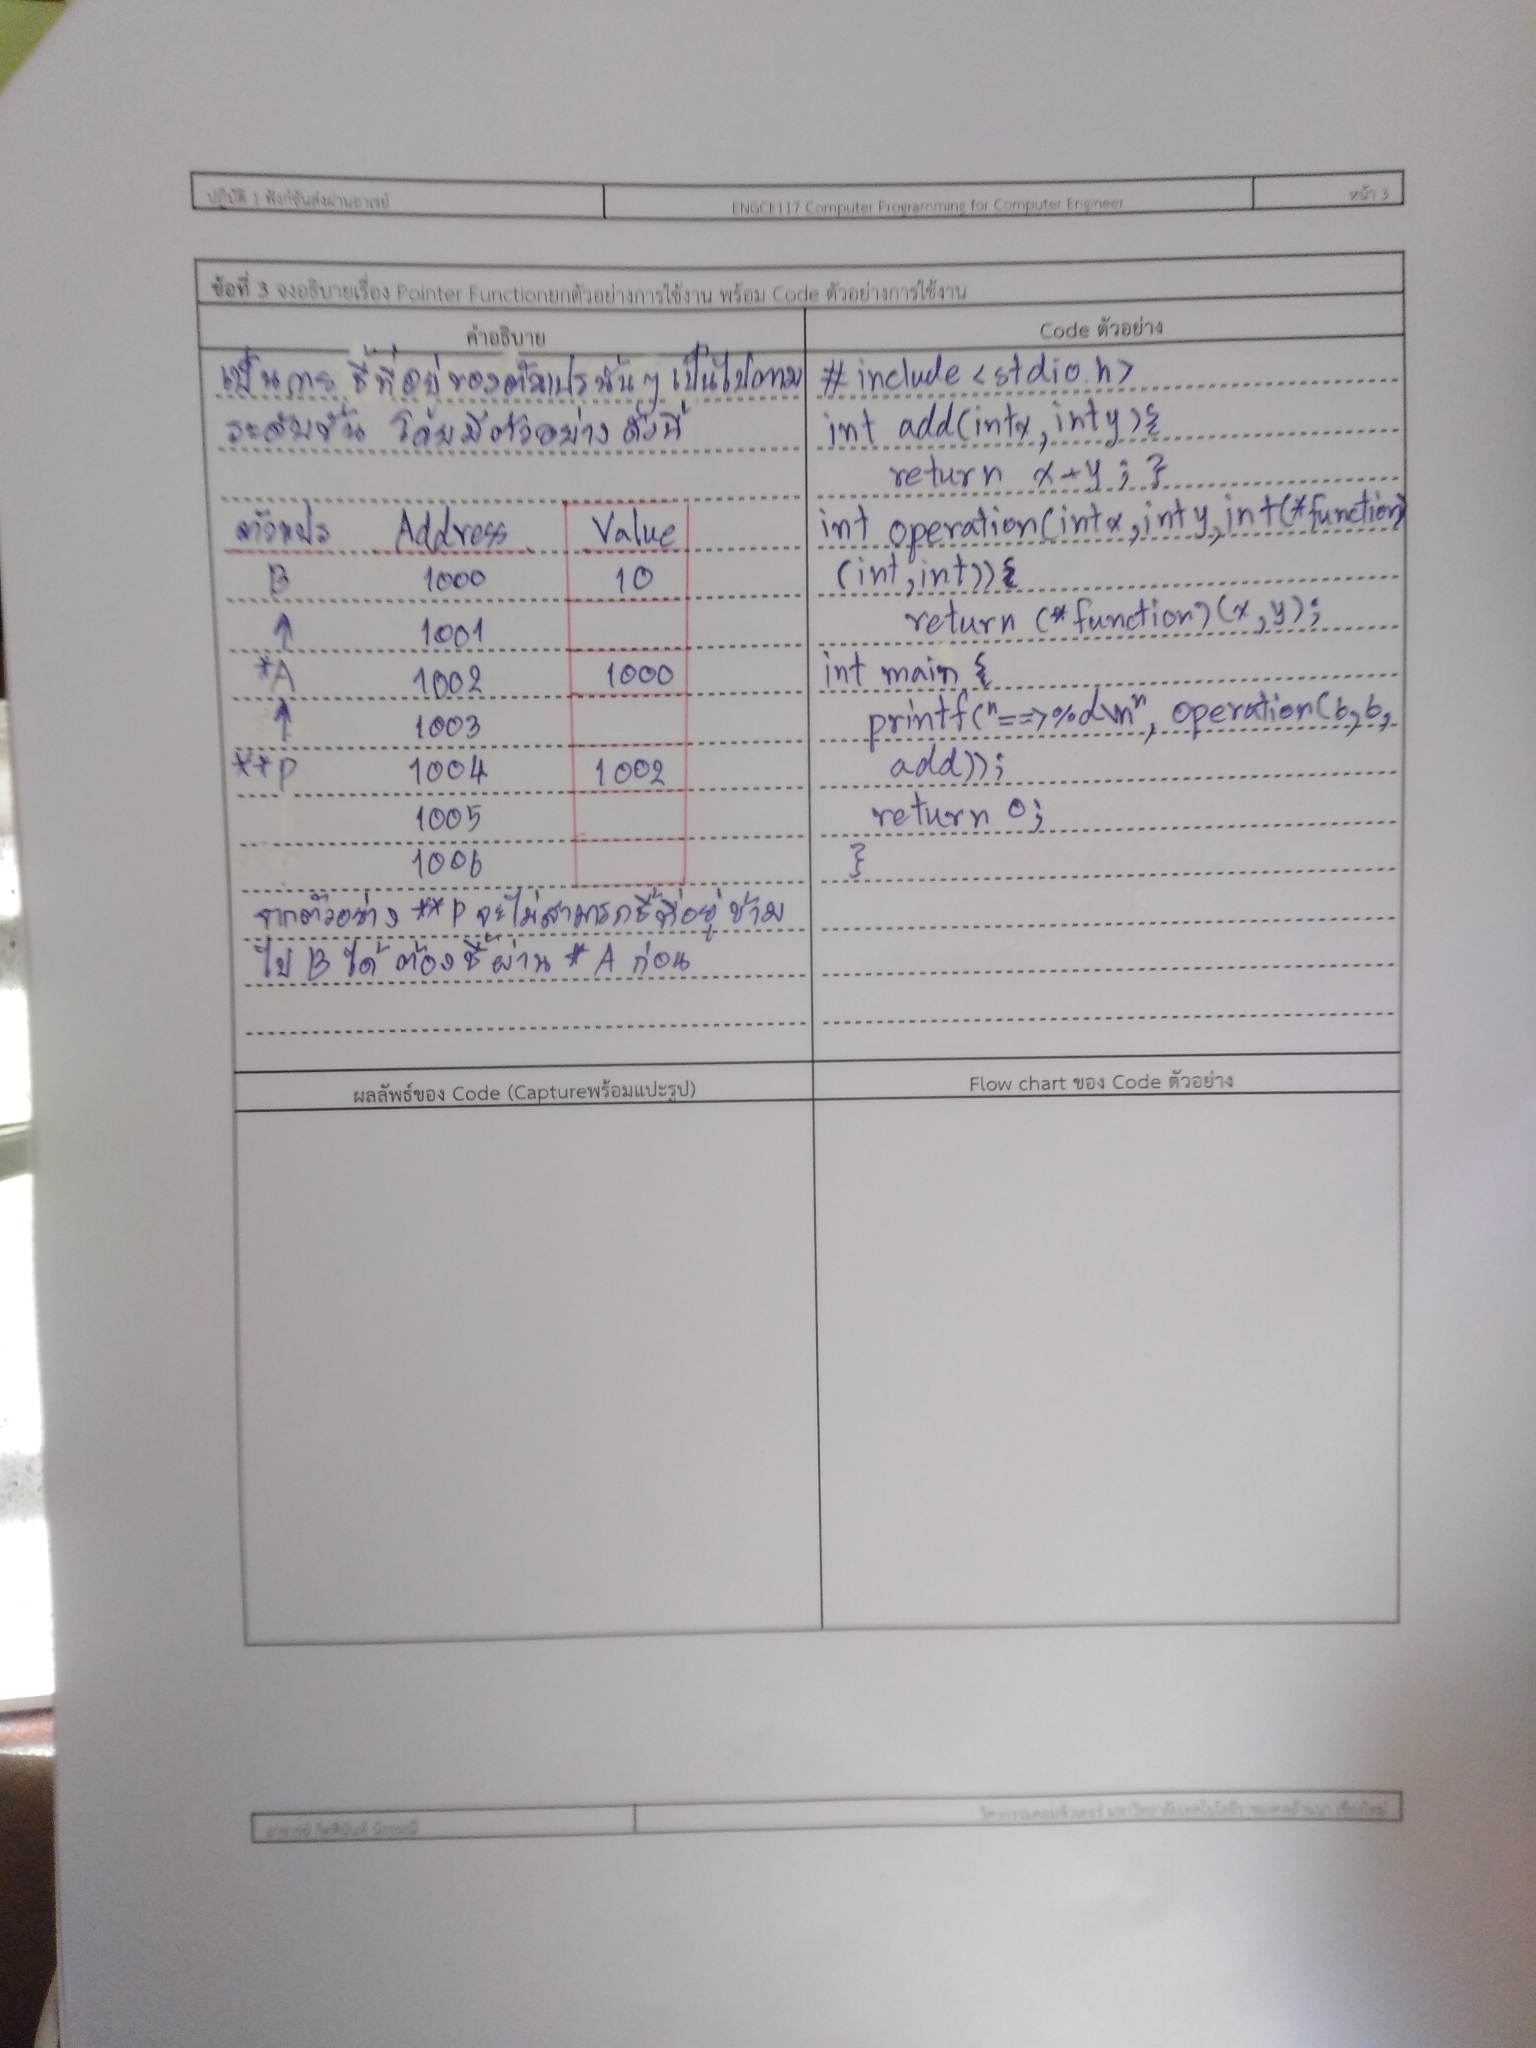 ปฏิบัติ 1 ฟังก์ชันส่งผ่านอาเรย์
ENGCE117 Computer Programming for Computer Engineer
หน้า 3
ข้อที่ 3 จงอธิบายเรื่อง Pointer Functionยกตัวอย่างการใช้งาน พร้อม Code ตัวอย่างการใช้งาน
คำอธิบาย
เป็นการ ชี้ที่อยู่ของตัวแปรนั้นๆ เป็นไปตาม
ระดับชั้น โดยมีตัวอย่าง ดังนี้
ตัวแปร Address Value
B 1000 10
↑ 1001
*A 1002 1000
↑ 1003
**P 1004 1002
1005
1006
จากตัวอย่าง **P จะไม่สามารถชี้ที่อยู่ ข้าม
ไป B ได้ ต้องชี้ผ่าน *A ก่อน
Code ตัวอย่าง
#include<stdio.h>
int add(intx,inty){
return x+y; }
int operation(intx,inty,int(*function)
(int,int)){
return (*function)(x,y);
int main {
printf("==>%d\n", operation(6,6,
add));
return 0;
}
ผลลัพธ์ของ Code (Captureพร้อมแปะรูป)
Flow chart ของ Code ตัวอย่าง
วิศวกรรมคอมพิวเตอร์ มหาวิทยาลัยเทคโนโลยีราชมงคลล้านนา เชียงใหม่